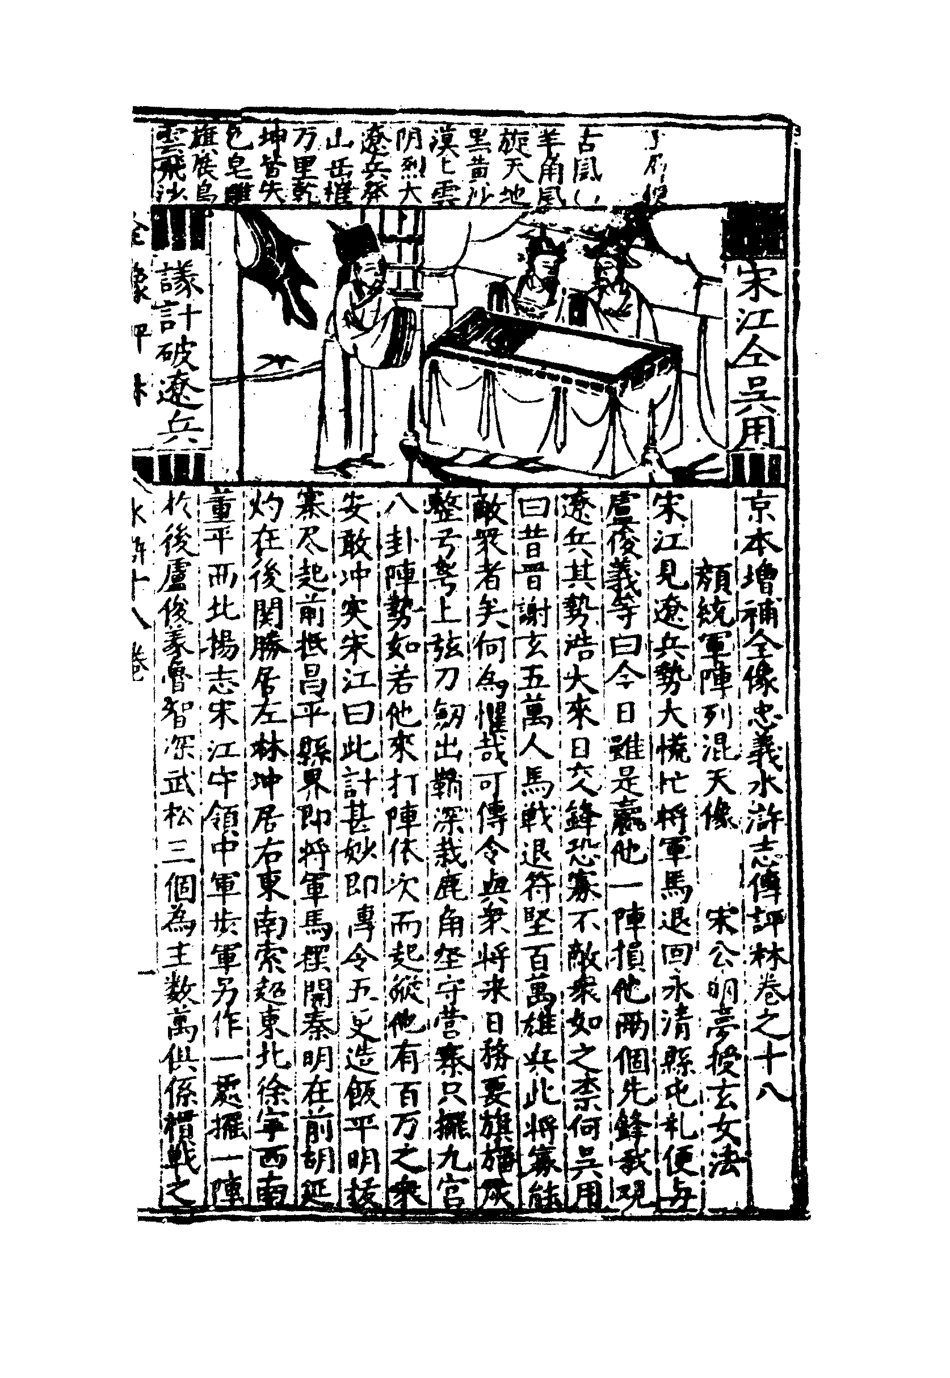 古風一
羊角風
旋天地
黑黄沙
漠匕雲
阴烈大
遼兵發
山岳摧
万里乾
坤皆失
色皂雕
旗展烏
雲飛沙
宋江仝吳用
議計破遼兵
全像評林
京本增補全像忠義水滸志傳評林卷之十八
顏統軍陣列混天像　宋公明夢授玄女法
宋江見遼兵勢大慌忙將軍馬退回永清縣屯札便与
盧俊義等曰今日雖是贏他一陣損他兩個先鋒我观
遼兵其勢浩大來日交鋒恐寡不敵衆如之柰何吳用
曰昔晋謝玄五萬人馬戰退符堅百萬雄兵此將寡能
敵衆者矣何為懼哉可傳令與衆將来日務要旗旛灰
整弓弩上弦刀劒出鞘深栽鹿角坚守营寨只擺九宫
八卦陣勢如若他來打陣依次而起縱他有百万之衆
安敢冲突宋江曰此計甚妙即傳令五更造飯平明拔
寨尽起前抵昌平縣界即将軍馬摆開秦明在前胡延
灼在後関勝居左林冲居右東南索超東北徐寜西南
董平西北揚志宋江守領中軍步軍另作一䖏擺一陣
於後盧俊義魯智深武松三個為主数萬俱係慣戰之
水滸十八卷